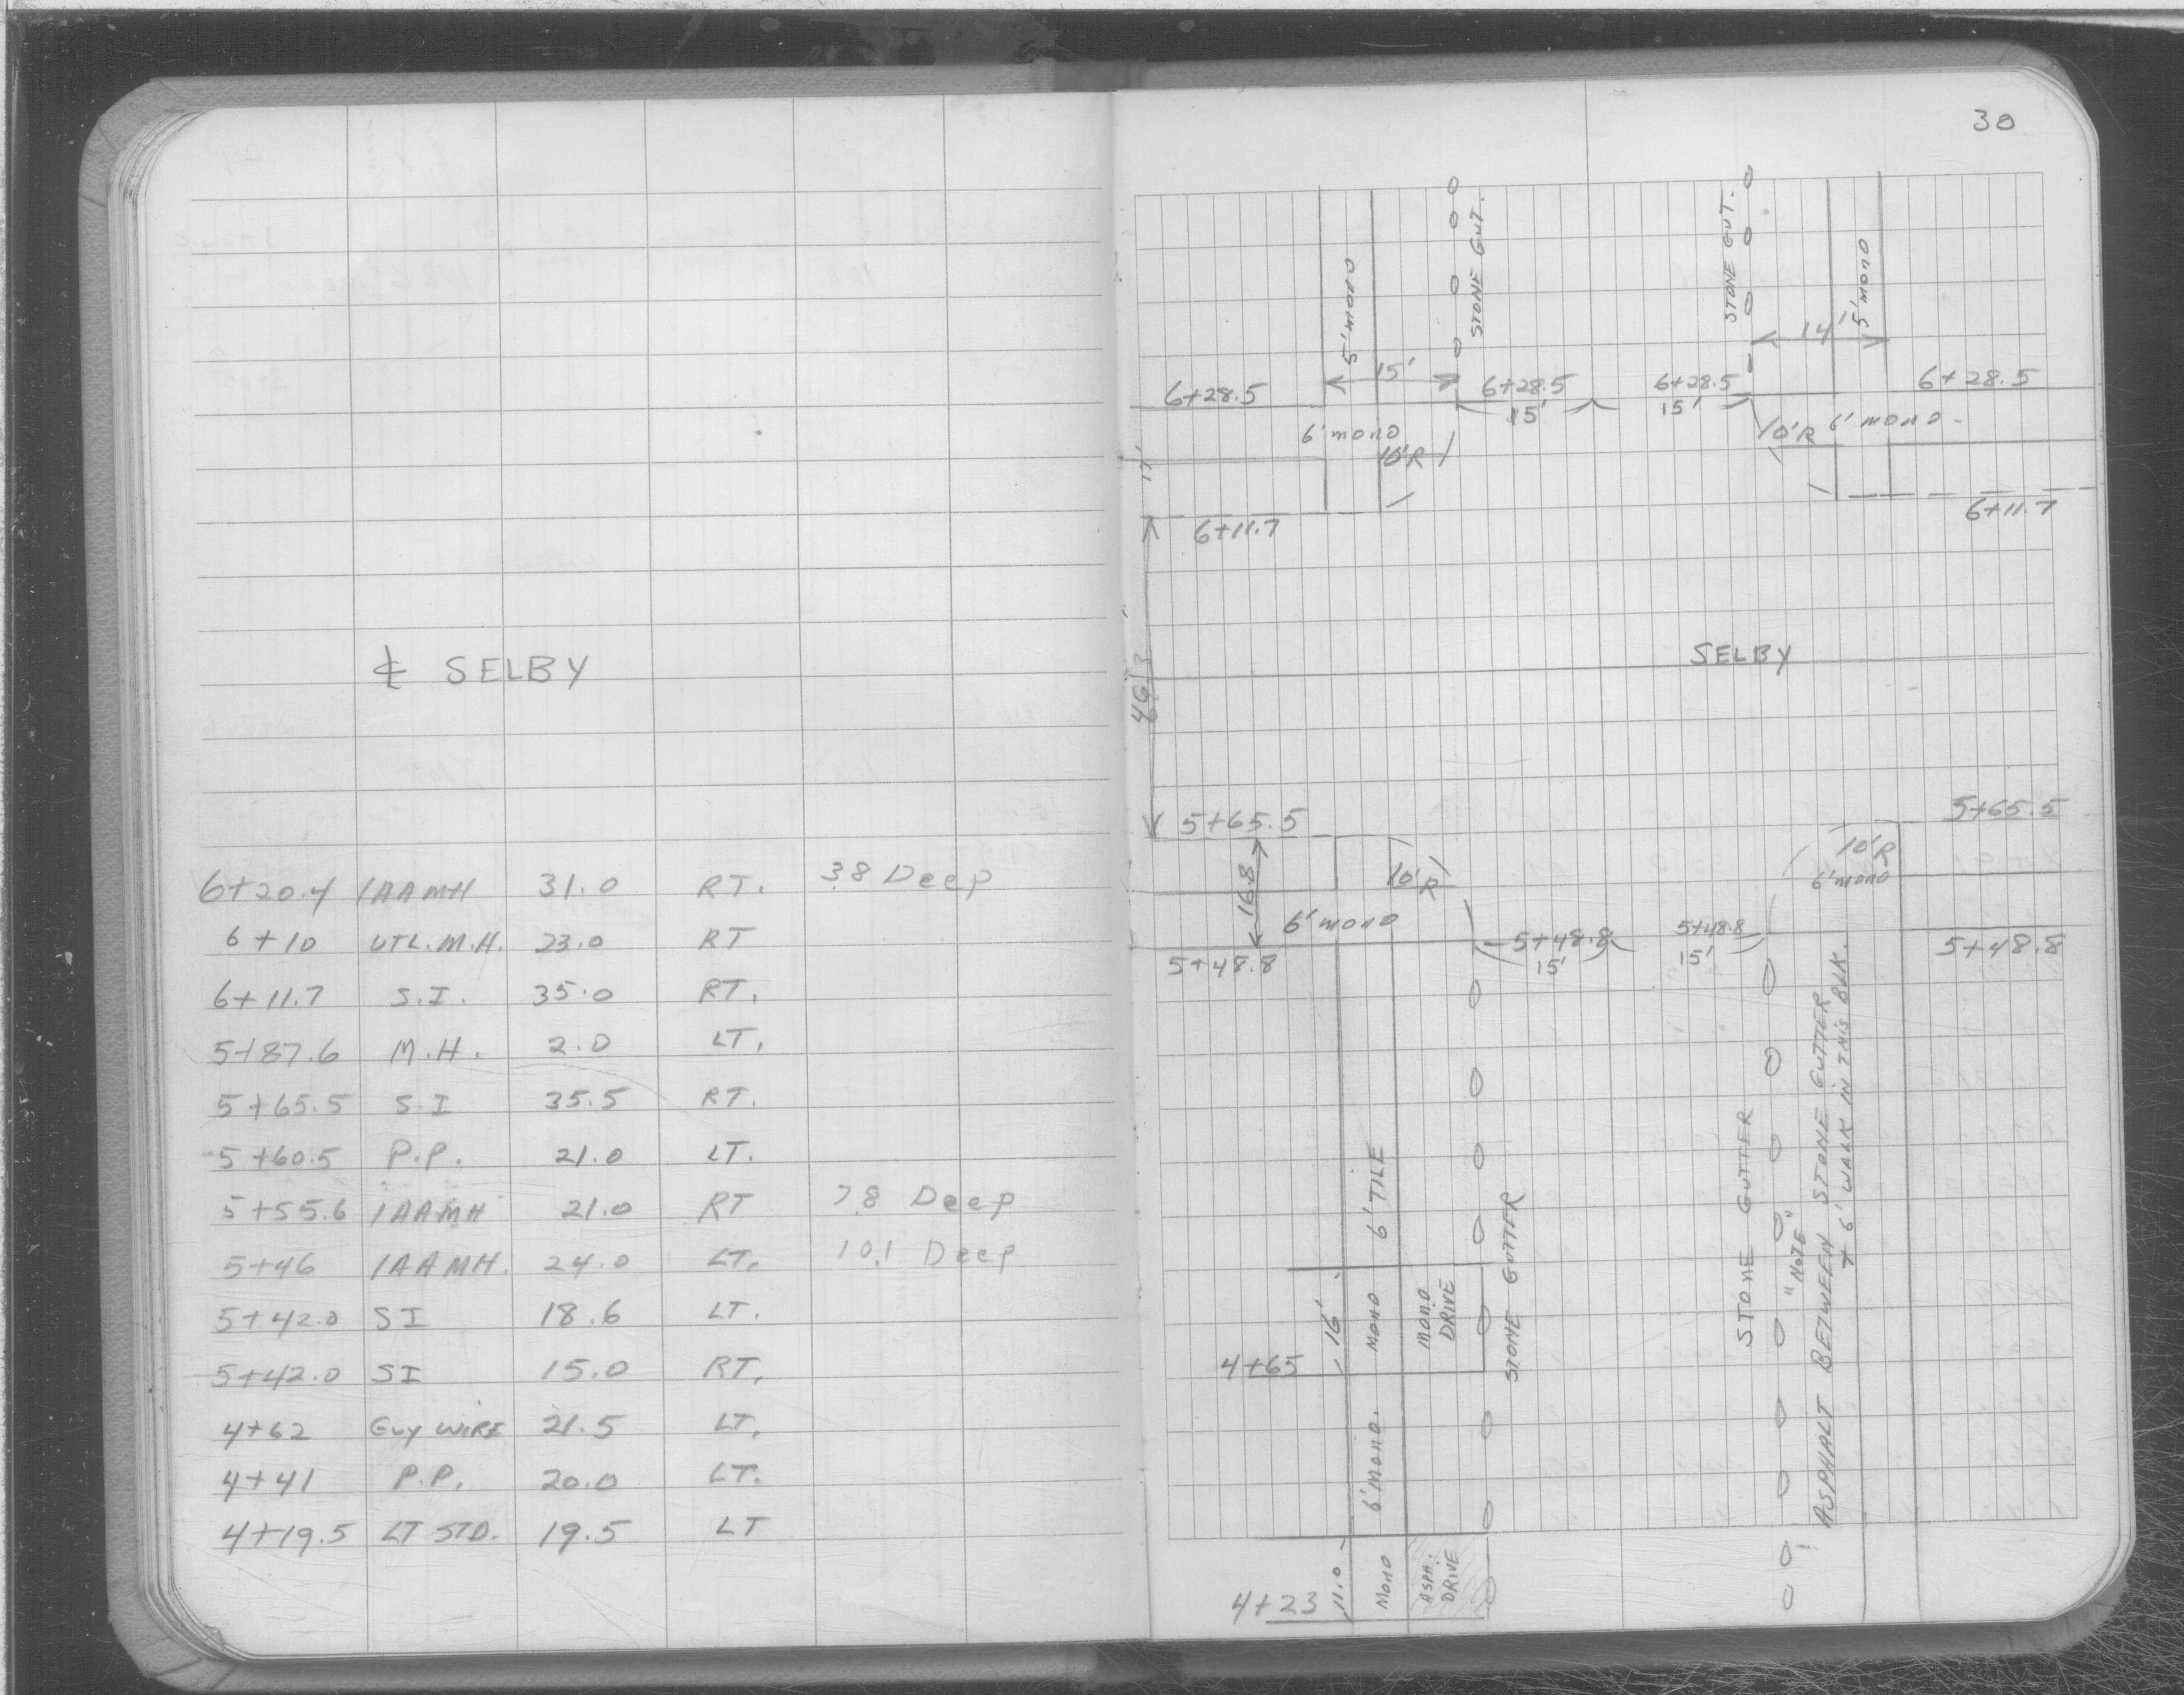 ℄ SELBY
6+20.4 IAAMH 31.0 RT. 3.8 Deep
6+10 UTL. M.H. 23.0 RT
6+11.7 S.I. 35.0 RT.
5+87.6 M.H. 2.0 LT.
5+65.5 S.I 35.5 RT.
5+60.5 P.P. 21.0 LT.
5+55.6 IAAMH 21.0 RT 7.8 Deep
5+46 IAAMH. 24.0 LT. 10.1 Deep
5+42.0 SI 18.6 LT.
5+42.0 SI 15.0 RT.
4+62 GUY WIRE 21.5 LT.
4+41 P.P. 20.0 LT.
4+19.5 LT STD. 19.5 LT
30
5' MONO
STONE GUT.
STONE GUT.
5' MONO
14'
15'
6+28.5
6+28.5
6+28.5
6+28.5
15'
15'
6' MONO
10'R
10'R
6' MONO.
17'
6+11.7
6+11.7
SELBY
46.3
5+65.5
5+65.5
10'R
10'R
6' MONO
16.8
6' MONO
5+48.8
5+48.8
15'
5+48.8
15'
5+48.8
6' TILE
STONE GUTTER
STONE GUTTER
"NOTE"
ASPHALT BETWEEN STONE GUTTER
+ 6' WALK IN THIS BLK.
16'
MONO
MONO
DRIVE
4+65
6' MONO.
11.0
MONO
ASPH.
DRIVE
4+23